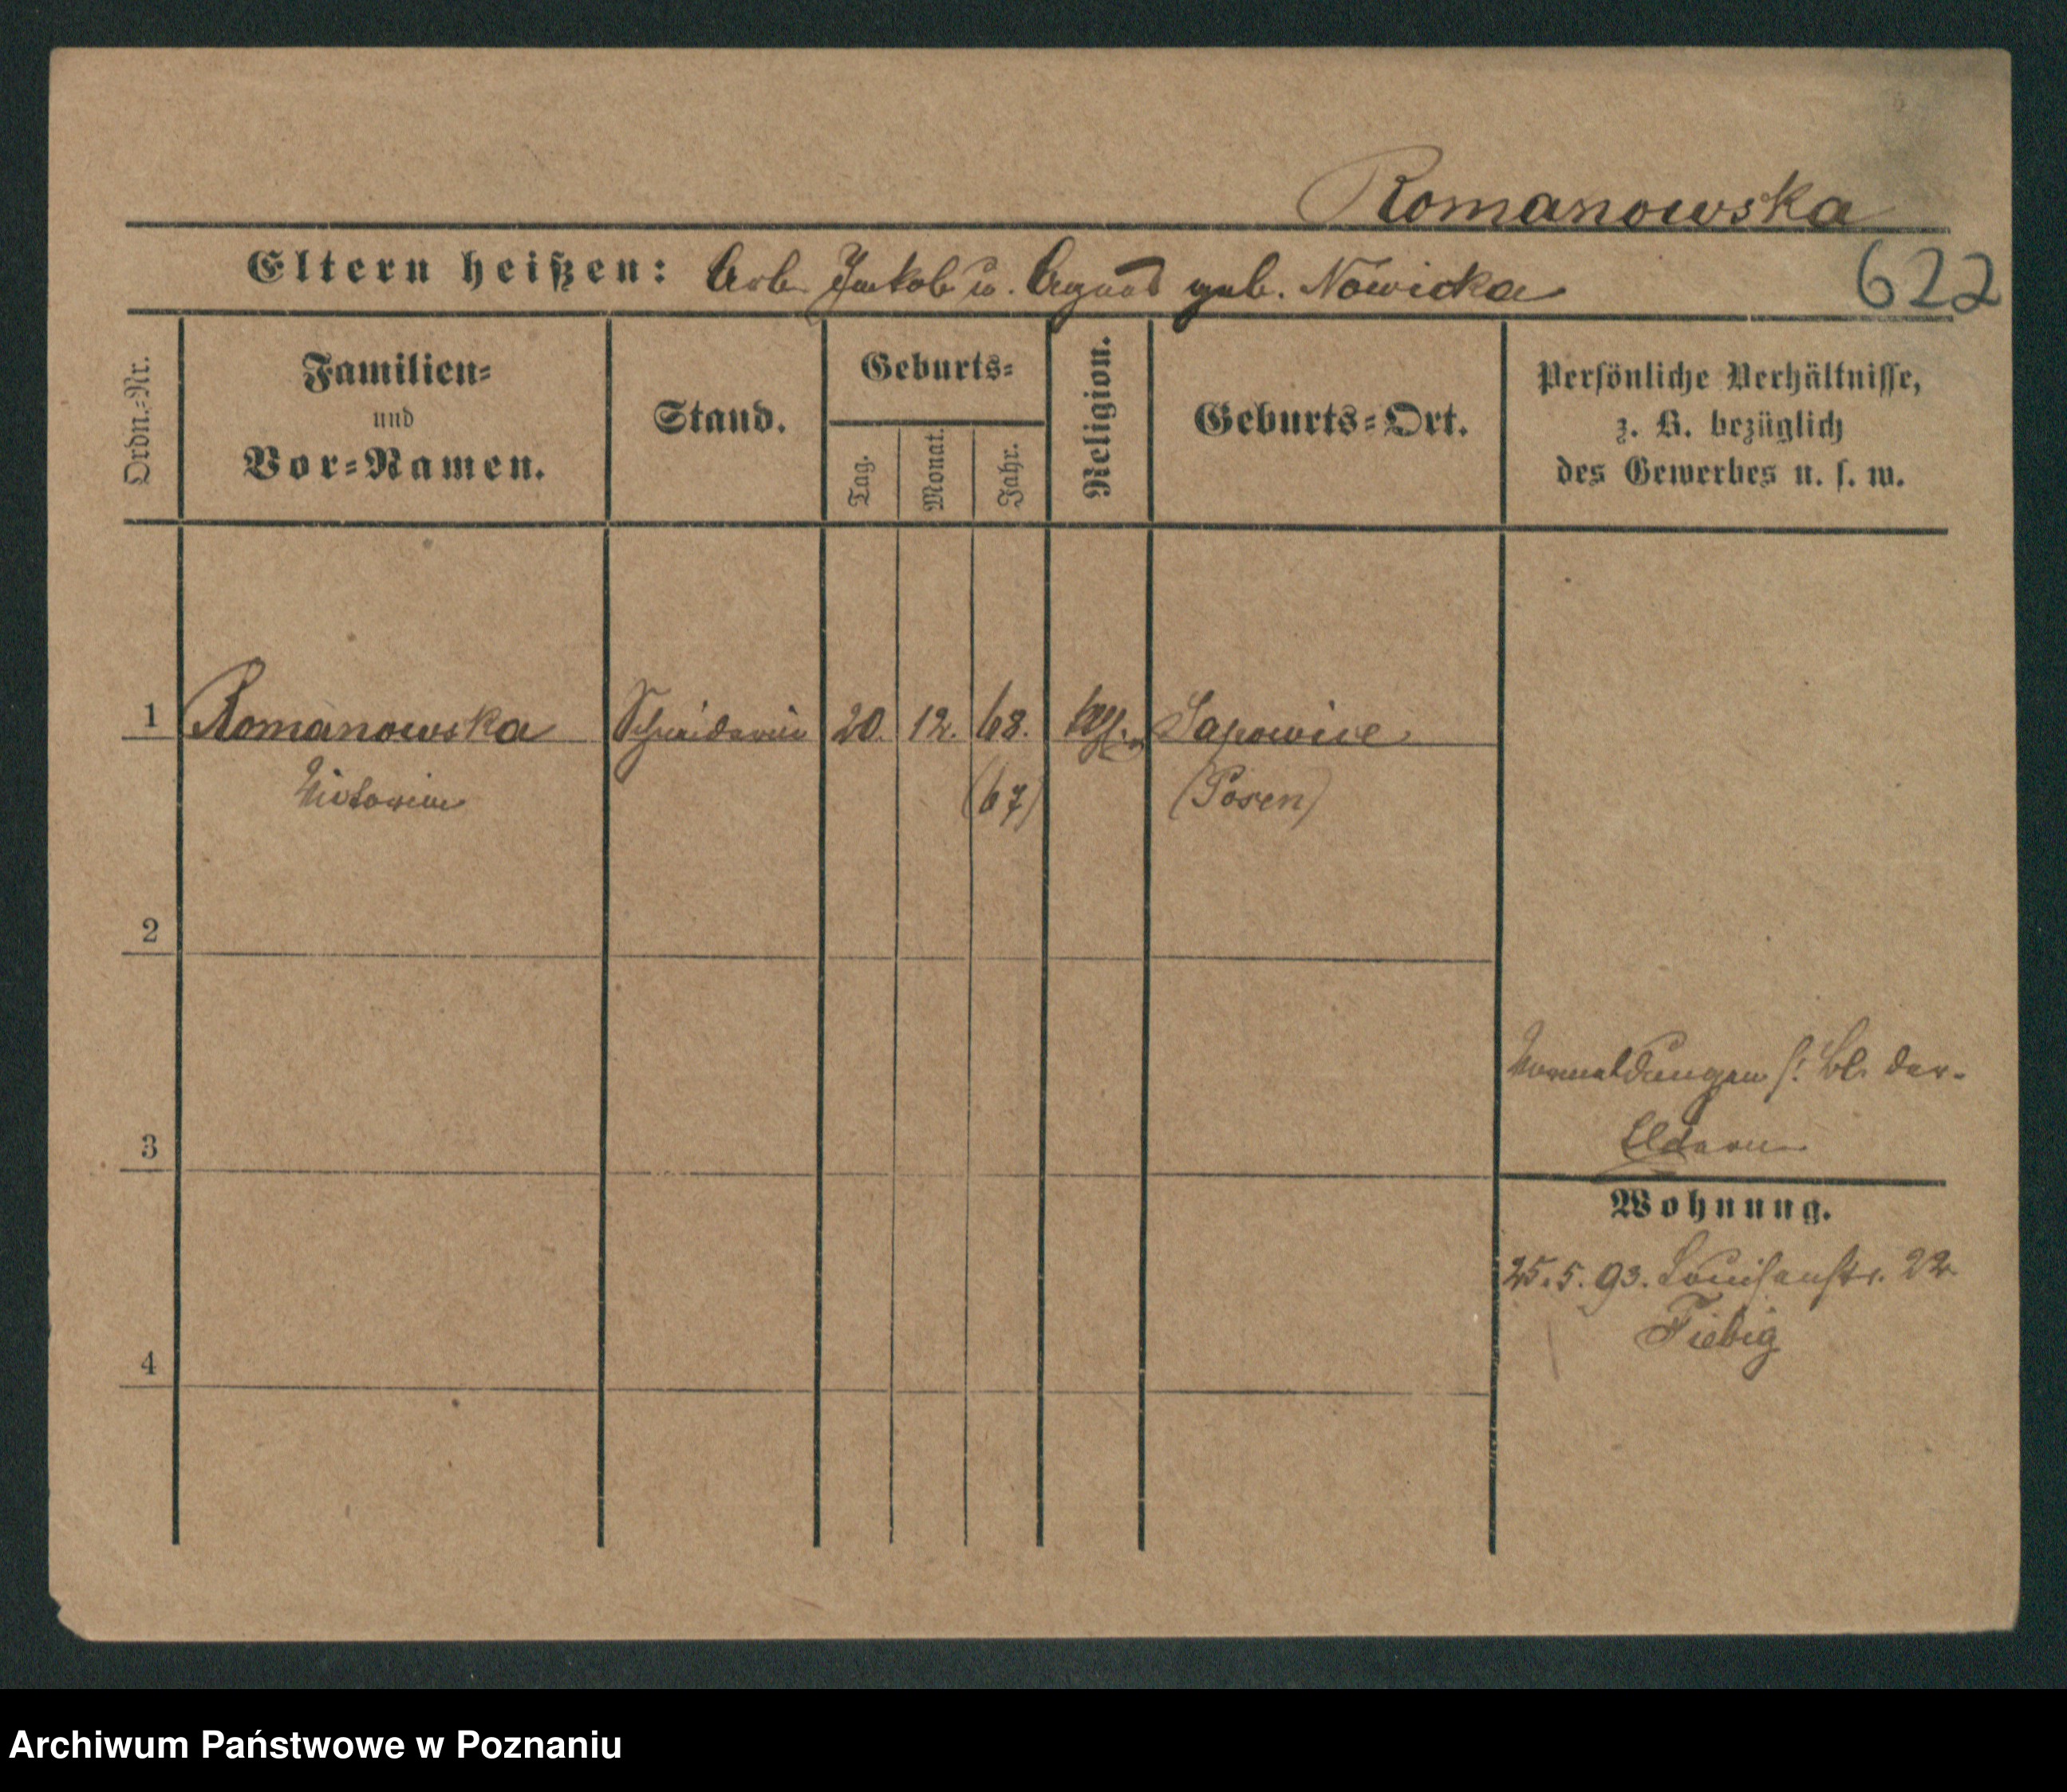 Romanowska
Eltern heißen: Arb. Jakob u. Agnes geb. Nowicka
622
Ordn.-Nr.
Familien-
und
Vor-Namen.
Stand.
Geburts-
Tag.
Monat.
Jahr.
Religion.
Geburts-Ort.
Persönliche Verhältnisse,
z. B. bezüglich
des Gewerbes u. s. w.
1 Romanowska Schneiderin 20. 12. 68. kath. Sapowice
Victoria (67) (Posen)
2
Vormeldungen s. Bl. der
3
Eltern
Wohnung.
25. 5. 93. Louisenstr. 22
Fiebig
4
Archiwum Państwowe w Poznaniu